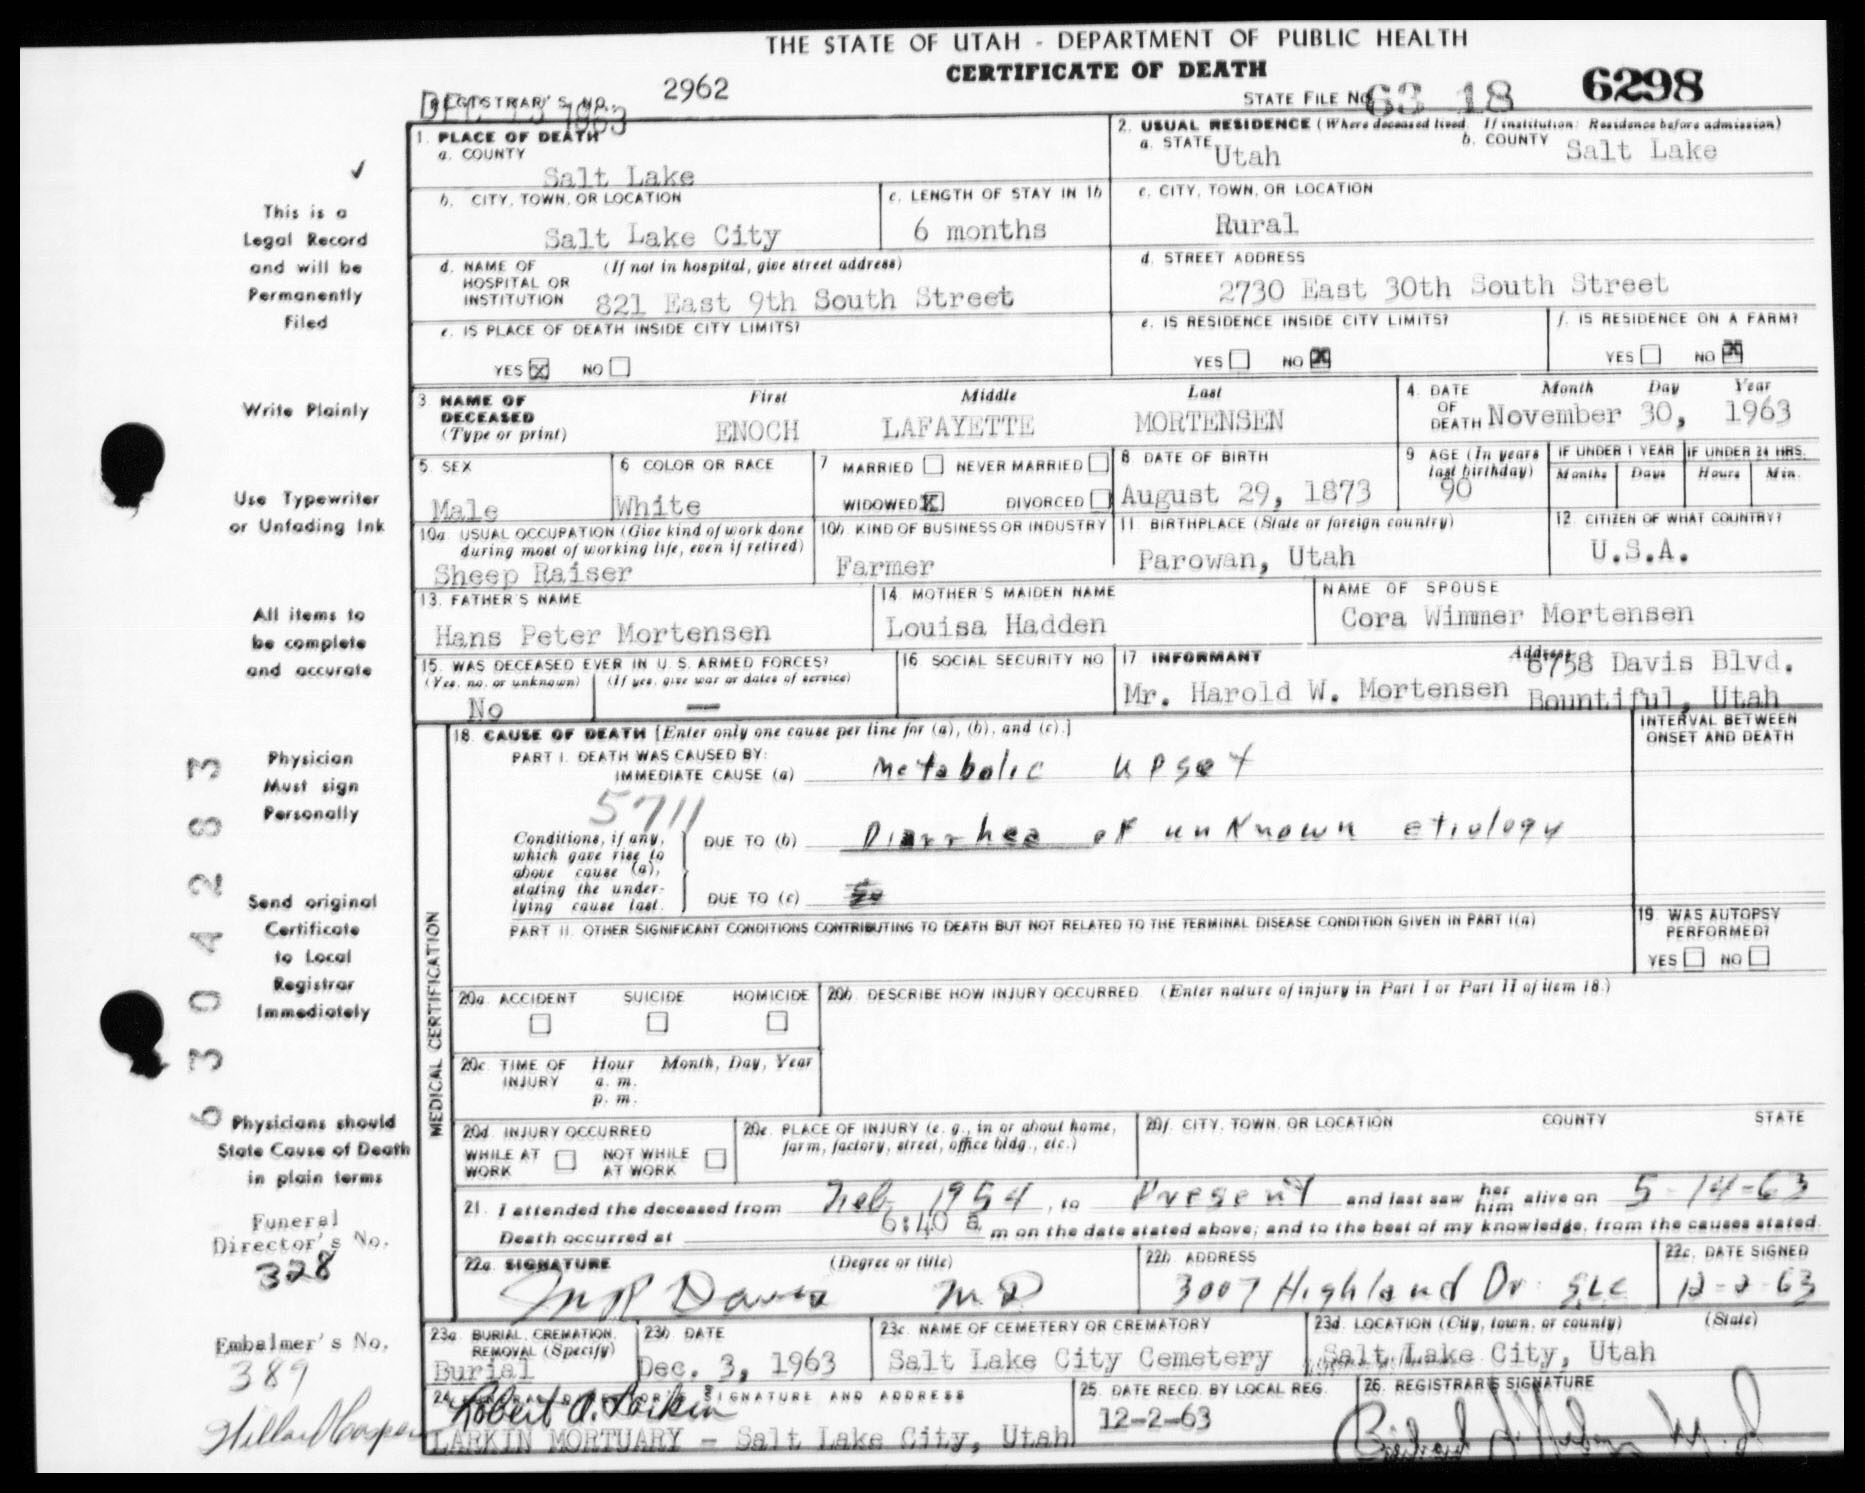 THE STATE OF UTAH - DEPARTMENT OF PUBLIC HEALTH
CERTIFICATE OF DEATH
REGISTRAR'S NO. 2962
STATE FILE NO. 63 18 6298
1. PLACE OF DEATH
a. COUNTY
Salt Lake
2. USUAL RESIDENCE (Where deceased lived. If institution: Residence before admission)
a. STATE Utah b. COUNTY Salt Lake
b. CITY, TOWN, OR LOCATION
Salt Lake City
c. LENGTH OF STAY IN 1b
6 months
c. CITY, TOWN, OR LOCATION
Rural
d. NAME OF HOSPITAL OR INSTITUTION (If not in hospital, give street address)
821 East 9th South Street
d. STREET ADDRESS
2730 East 30th South Street
e. IS PLACE OF DEATH INSIDE CITY LIMITS?
YES X NO
e. IS RESIDENCE INSIDE CITY LIMITS?
YES NO X
f. IS RESIDENCE ON A FARM?
YES NO X
3. NAME OF DECEASED (Type or print)
First Middle Last
ENOCH LAFAYETTE MORTENSEN
4. DATE OF DEATH Month Day Year
November 30, 1963
5. SEX
Male
6 COLOR OR RACE
White
7 MARRIED NEVER MARRIED
WIDOWED X DIVORCED
8 DATE OF BIRTH
August 29, 1873
9 AGE (In years last birthday)
90
IF UNDER 1 YEAR
Months Days
IF UNDER 24 HRS.
Hours Min.
10a. USUAL OCCUPATION (Give kind of work done during most of working life, even if retired)
Sheep Raiser
10b. KIND OF BUSINESS OR INDUSTRY
Farmer
11. BIRTHPLACE (State or foreign country)
Parowan, Utah
12. CITIZEN OF WHAT COUNTRY?
U.S.A.
13. FATHER'S NAME
Hans Peter Mortensen
14. MOTHER'S MAIDEN NAME
Louisa Hadden
NAME OF SPOUSE
Cora Wimmer Mortensen
15. WAS DECEASED EVER IN U. S. ARMED FORCES?
(Yes, no, or unknown) (If yes, give war or dates of service)
No —
16. SOCIAL SECURITY NO.
17. INFORMANT Address
Mr. Harold W. Mortensen 6758 Davis Blvd.
Bountiful, Utah
MEDICAL CERTIFICATION
18. CAUSE OF DEATH [Enter only one cause per line for (a), (b), and (c).]
INTERVAL BETWEEN ONSET AND DEATH
PART I. DEATH WAS CAUSED BY:
IMMEDIATE CAUSE (a) Metabolic upset
5711
Conditions, if any, which gave rise to above cause (a), stating the underlying cause last.
DUE TO (b) Diarrhea of unknown etiology
DUE TO (c)
PART II. OTHER SIGNIFICANT CONDITIONS CONTRIBUTING TO DEATH BUT NOT RELATED TO THE TERMINAL DISEASE CONDITION GIVEN IN PART I(a)
19. WAS AUTOPSY PERFORMED?
YES NO
20a. ACCIDENT SUICIDE HOMICIDE
20b. DESCRIBE HOW INJURY OCCURRED. (Enter nature of injury in Part I or Part II of item 18.)
20c. TIME OF INJURY Hour Month, Day, Year
a. m.
p. m.
20d. INJURY OCCURRED
WHILE AT WORK NOT WHILE AT WORK
20e. PLACE OF INJURY (e. g., in or about home, farm, factory, street, office bldg., etc.)
20f. CITY, TOWN, OR LOCATION COUNTY STATE
21. I attended the deceased from Feb 1954, to Present and last saw her him alive on 5-14-63
Death occurred at 6:40 a m on the date stated above; and to the best of my knowledge, from the causes stated.
22a. SIGNATURE (Degree or title)
Davis M D
22b. ADDRESS
3007 Highland Dr. SLC
22c. DATE SIGNED
12-2-63
23a. BURIAL, CREMATION, REMOVAL (Specify)
Burial
23b. DATE
Dec. 3, 1963
23c. NAME OF CEMETERY OR CREMATORY
Salt Lake City Cemetery
23d. LOCATION (City, town, or county) (State)
Salt Lake City, Utah
24. FUNERAL DIRECTOR'S SIGNATURE AND ADDRESS
Robert A. Larkin
LARKIN MORTUARY - Salt Lake City, Utah
25. DATE RECD. BY LOCAL REG.
12-2-63
26. REGISTRAR'S SIGNATURE
✓
This is a
Legal Record
and will be
Permanently
Filed
Write Plainly
Use Typewriter
or Unfading Ink
All items to
be complete
and accurate
Physician
Must sign
Personally
Send original
Certificate
to Local
Registrar
Immediately
Physicians should
State Cause of Death
in plain terms
Funeral
Director's No.
328
Embalmer's No.
389
6 3 0 4 2 8 3